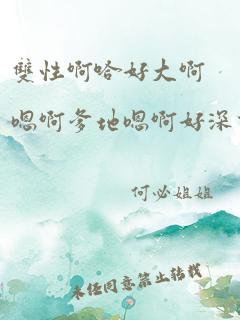 雙性啊哈好大啊
嗯啊爹地嗯啊好深
何必姐姐
未经同意禁止转载